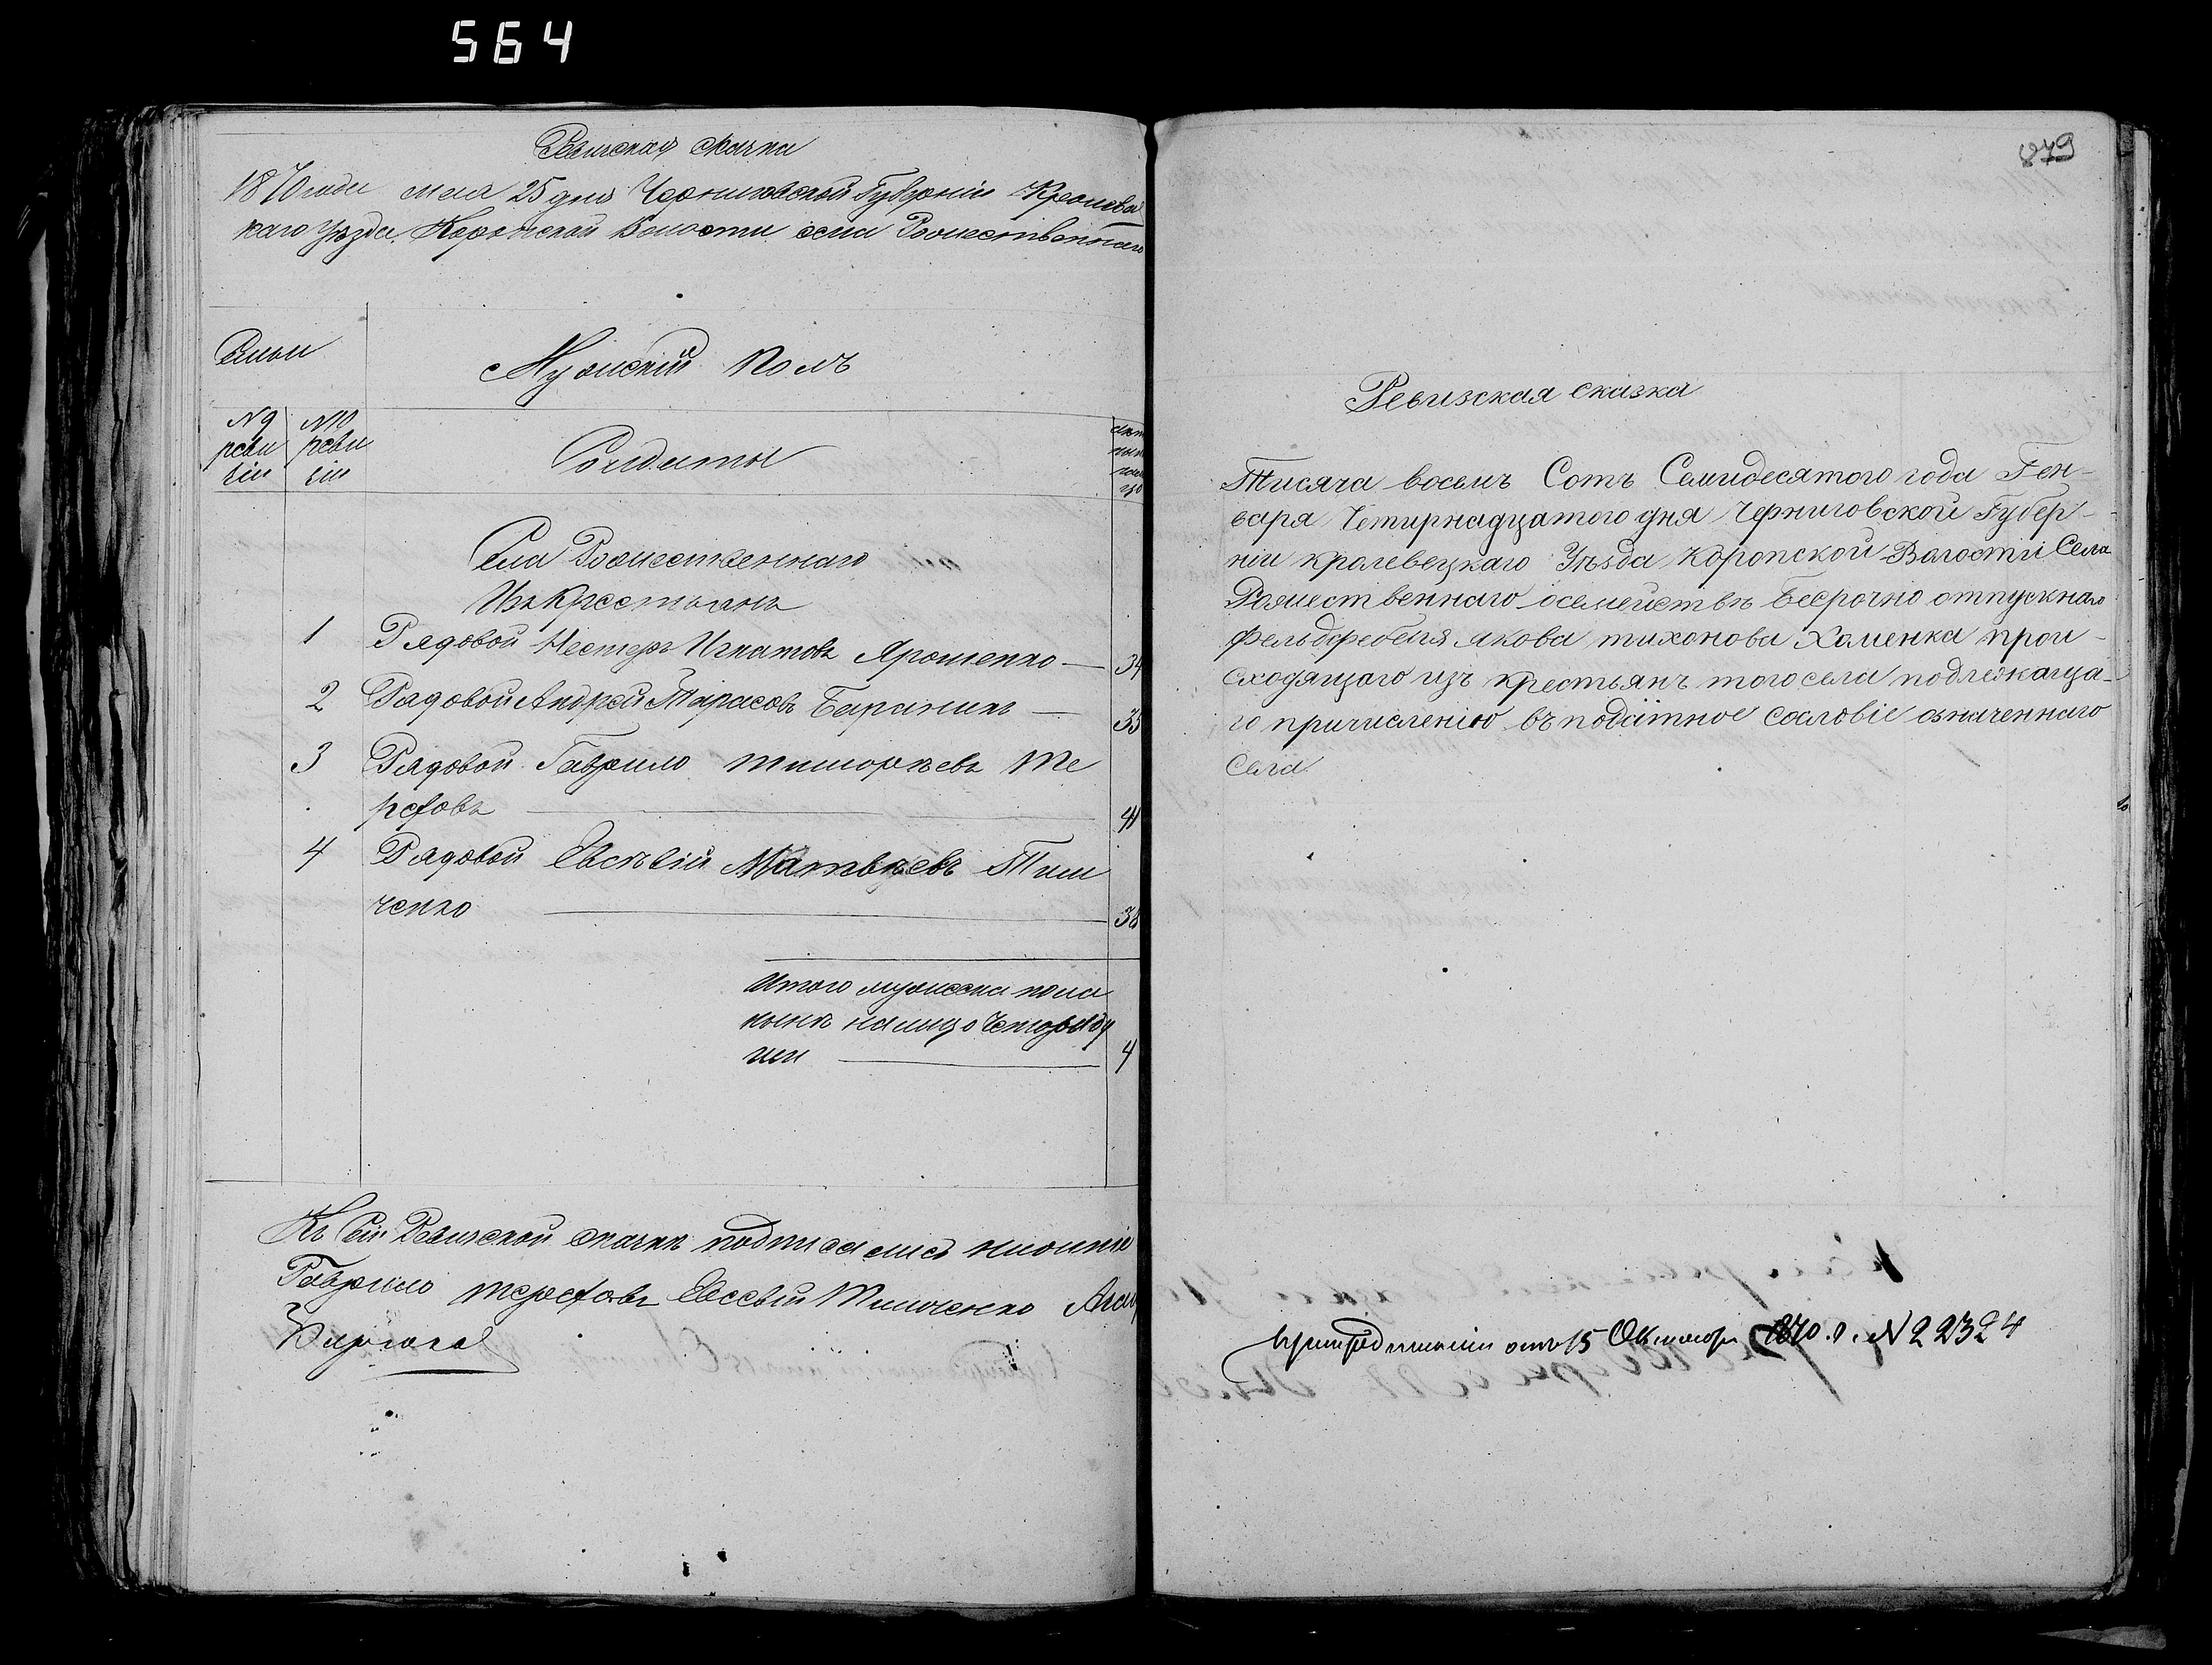 564
Ревизская сказка
1870 года мая 25 дня Черниговской Губерніи Кролевец
каго Уѣзда, Коропской Волости села Рожественнаго
Семьи
Мужскій Полъ
N 9 N 10
реви реви
зіи зіи
Солдаты
Села Рожественнаго
Изъ Крестьянъ
1 Рядовой Нестеръ Игнатовъ Ярошенко — 34
2 Рядовой Андрей Тарасовъ Бараникъ — 35
3 Рядовой Гаврило Тимофѣевъ Те
рефовъ — 41
4 Рядовой Евсѣвій Матвѣевъ Тим
ченко — 38
Итого мужеска пола
налицо Четыре ду
ши — 4
Къ Сей Ревизской сказкѣ подписались
Гаврило Терефовъ Евсевій Тимченко
879
Ревизская сказка
Тисяча восемъ Сотъ Семидесятого года Ген-
варя Четирнадцатого дня Черниговской Губер-
ніи Кролевецкаго Уѣзда Коропской Волости Села
Рожественнаго осемействѣ Безсрочно отпускнаго
Фельдфебеля Якова Тихонова Хоменка прои-
сходящаго изъ крестьянъ того села подлежаща-
го причисленію въ податное сословіе означеннаго
Села.
При предписаніи отъ 15 Октября 1870 г. N 22324